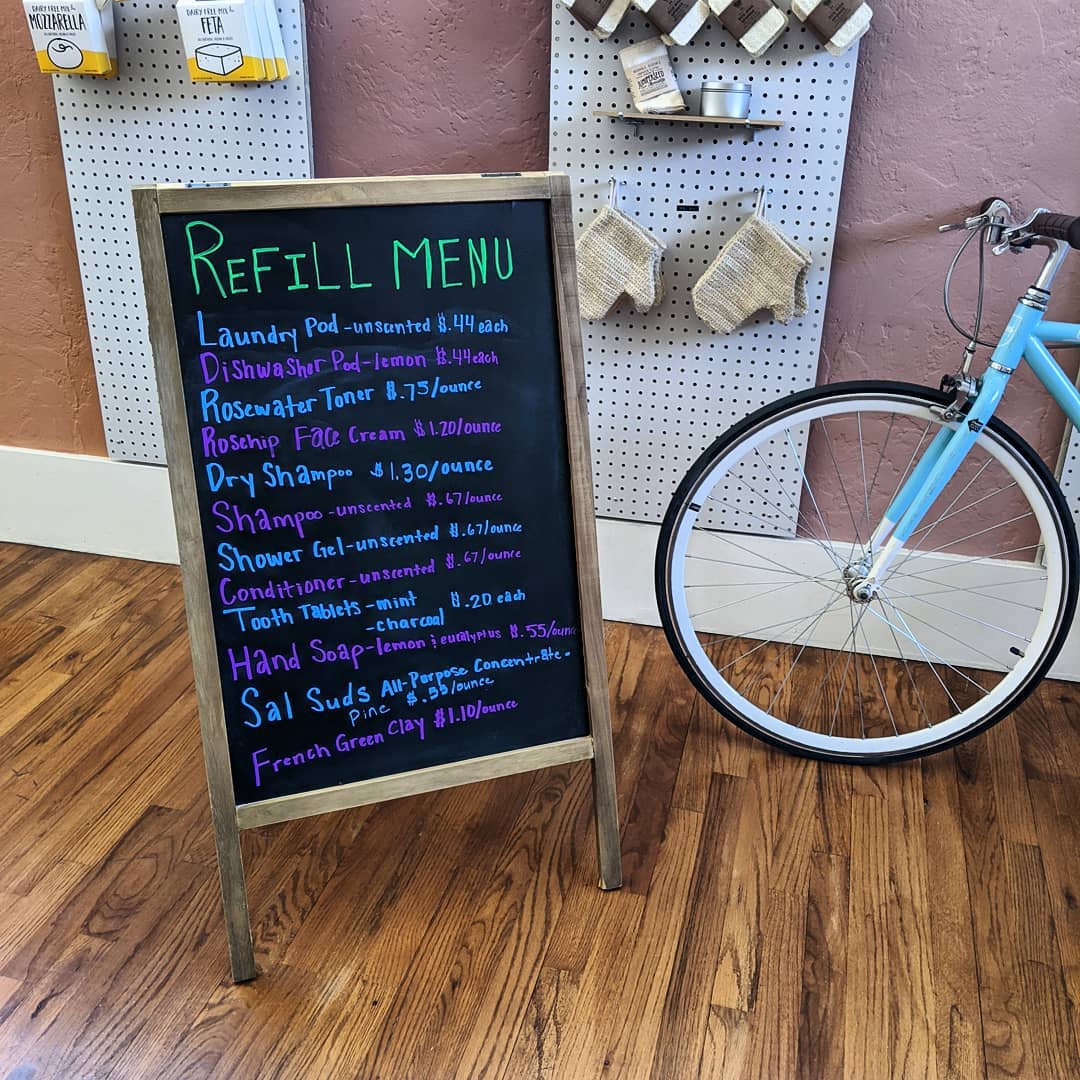 DAIRY FREE MIX
MOZZARELLA
DAIRY FREE MIX
FETA
REFILL MENU
Laundry Pod - unscented $.44 each
Dishwasher Pod - lemon $.44 each
Rosewater Toner $.75/ounce
Rosehip Face Cream $1.20/ounce
Dry Shampoo $1.30/ounce
Shampoo - unscented $.67/ounce
Shower Gel - unscented $.67/ounce
Conditioner - unscented $.67/ounce
Tooth Tablets - mint $.20 each
- charcoal
Hand Soap - lemon & eucalyptus $.55/ounce
Sal Suds All-Purpose Concentrate -
Pine $.55/ounce
French Green Clay $1.10/ounce